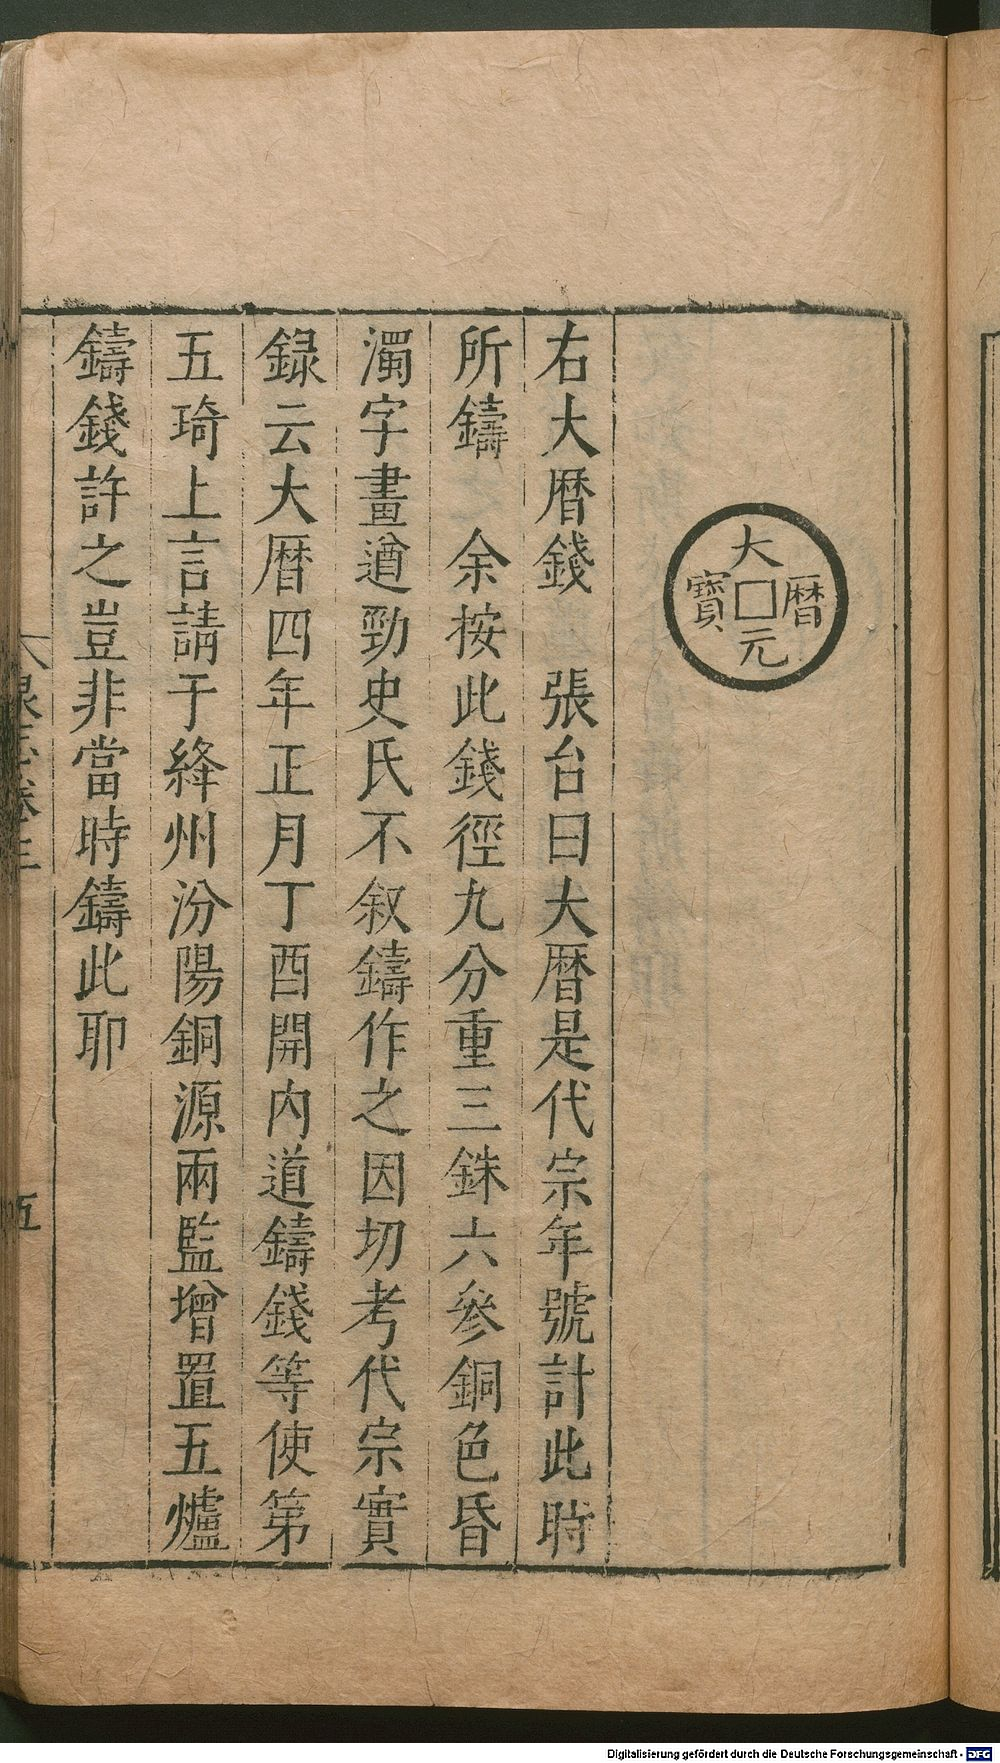 大暦元寶
右大暦錢　張台曰大暦是代宗年號計此時
所鑄　余按此錢徑九分重三銖六參銅色昏
濁字畫遒勁史氏不叙鑄作之因切考代宗實
録云大暦四年正月丁酉開内道鑄錢等使第
五琦上言請于絳州汾陽銅源兩監增置五爐
鑄錢許之豈非當時鑄此耶
泉志卷三
五
Digitalisierung gefördert durch die Deutsche Forschungsgemeinschaft - DFG